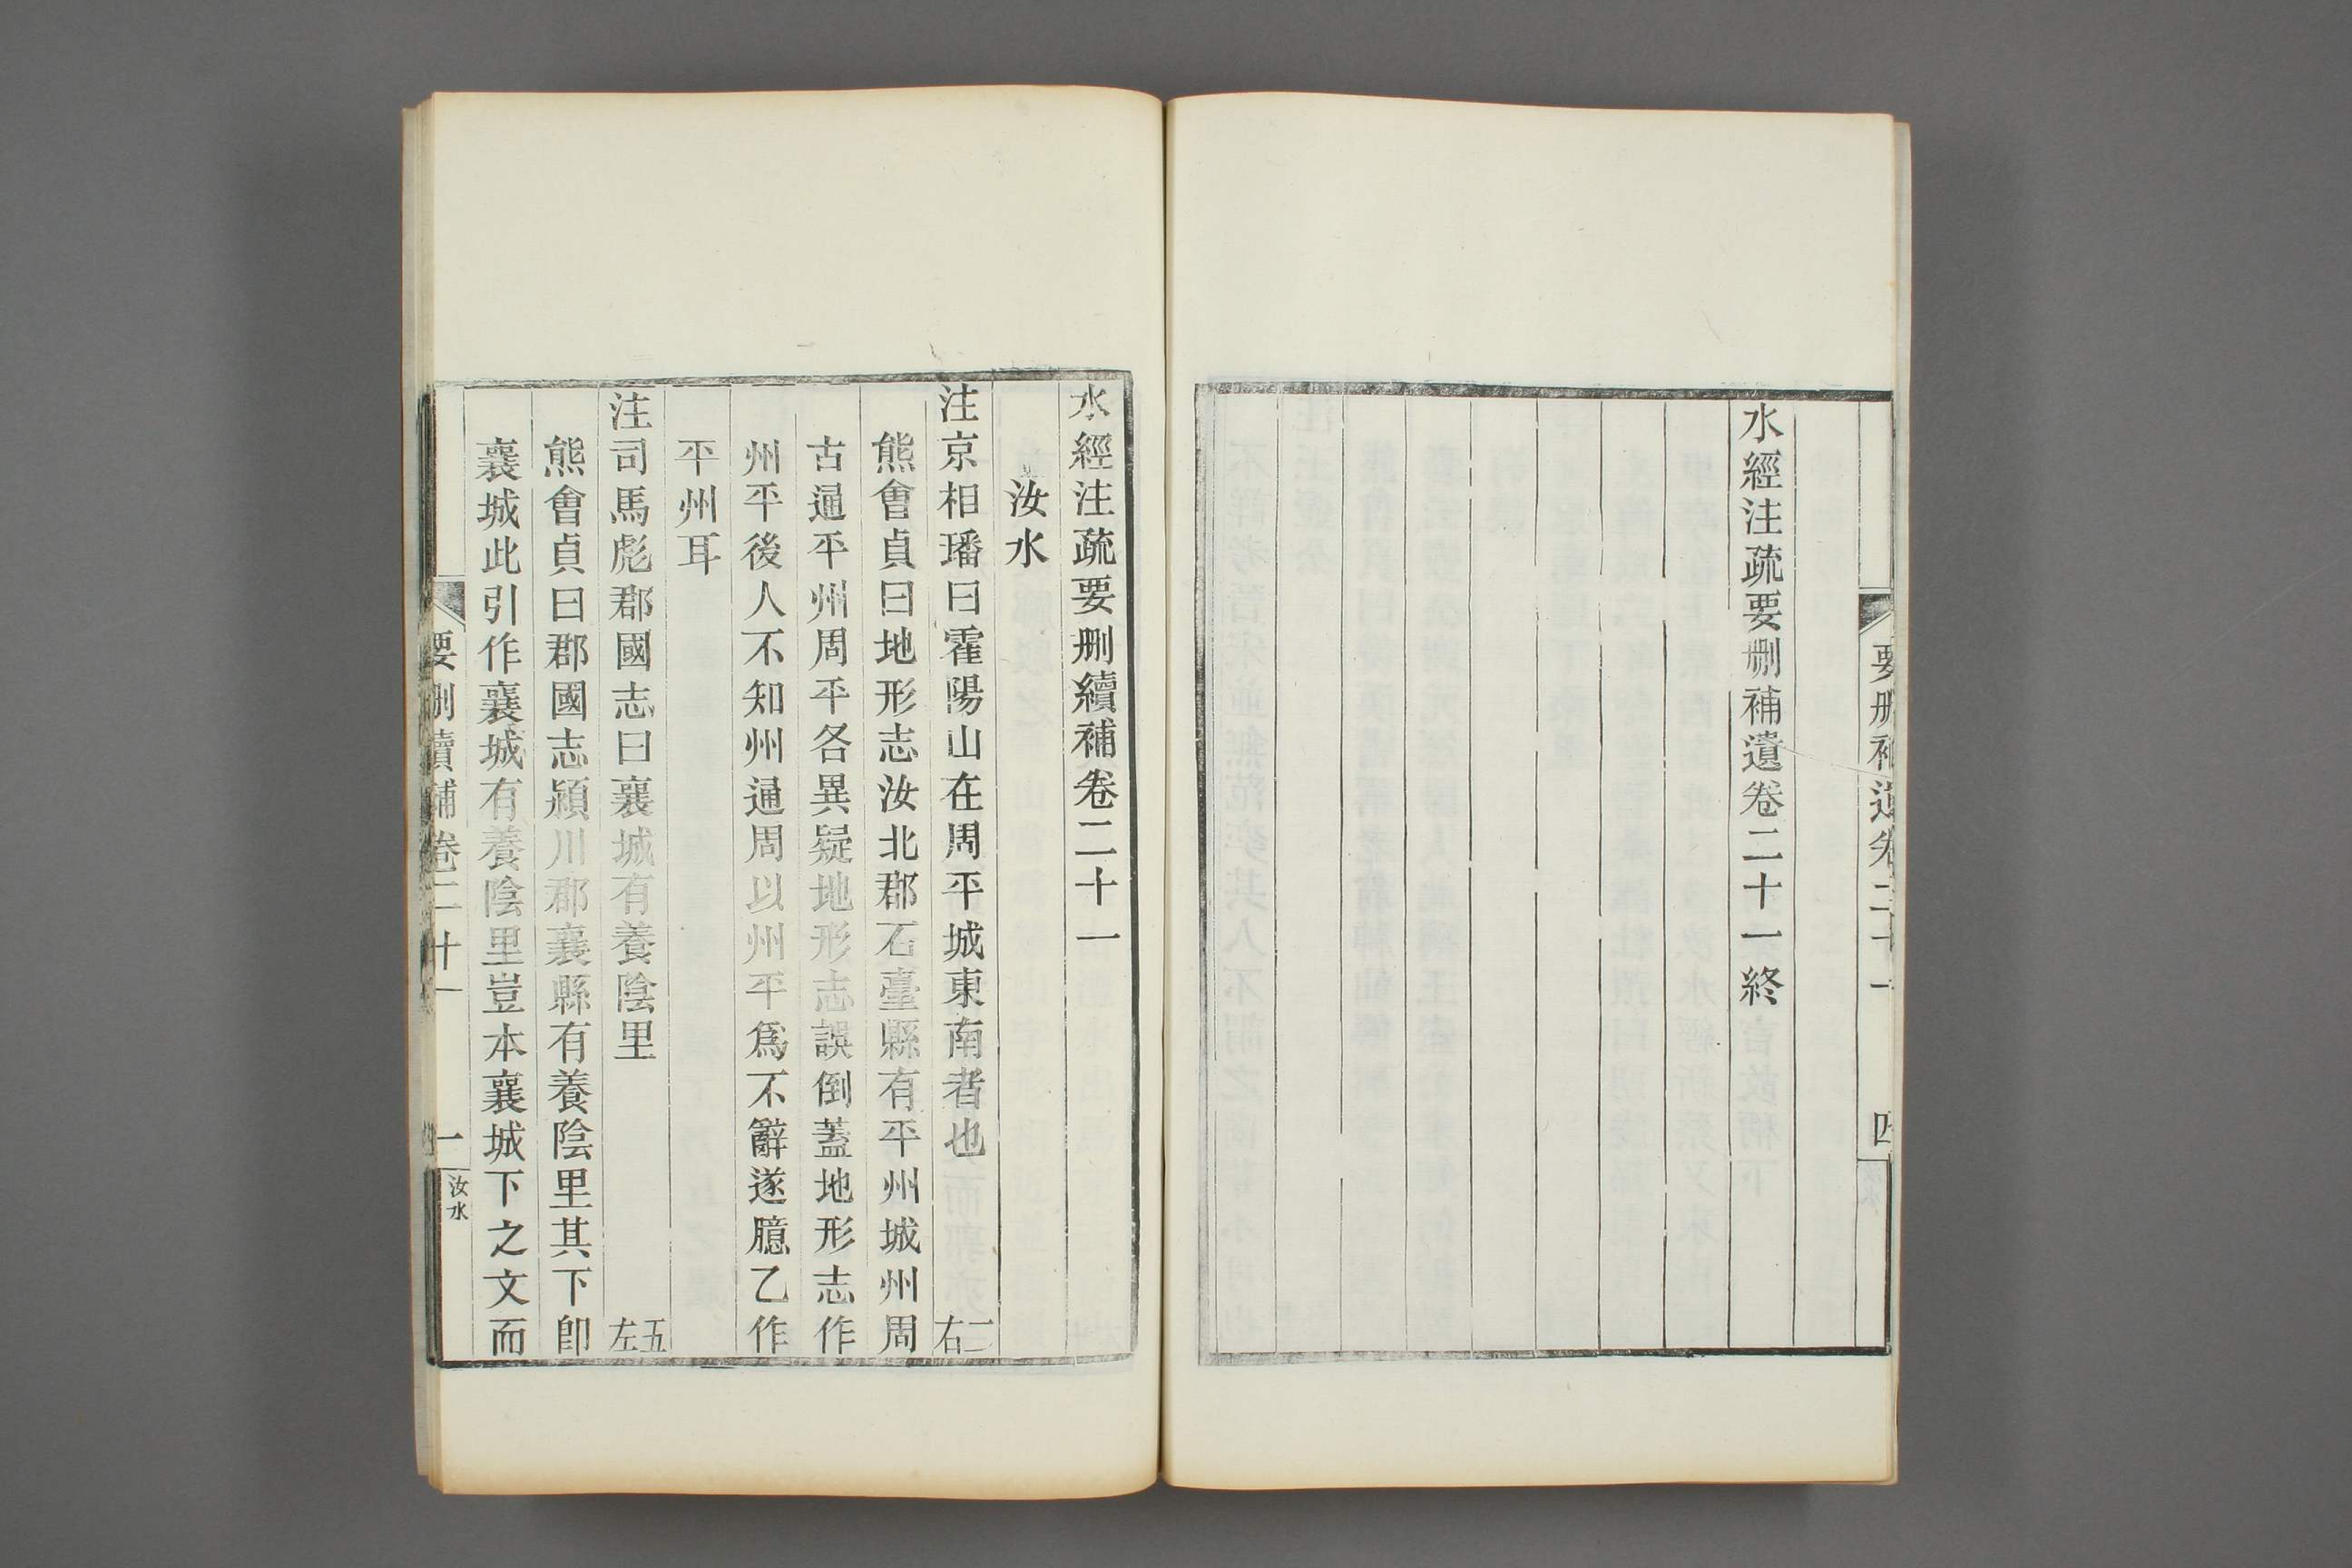 水經注疏要刪補遺卷二十一終
水經注疏要刪續補卷二十一
汝水
注京相璠曰霍陽山在周平城東南者也 二右
熊會貞曰地形志汝北郡石臺縣有平州城州周
古通平州周平各異疑地形志誤倒蓋地形志作
州平後人不知州通周以州平爲不辭遂臆乙作
平州耳
注司馬彪郡國志曰襄城有養陰里 五左
熊會貞曰郡國志潁川郡襄縣有養陰里其下卽
襄城此引作襄城有養陰里豈本襄城下之文而
要刪續補卷二十一 一 汝水